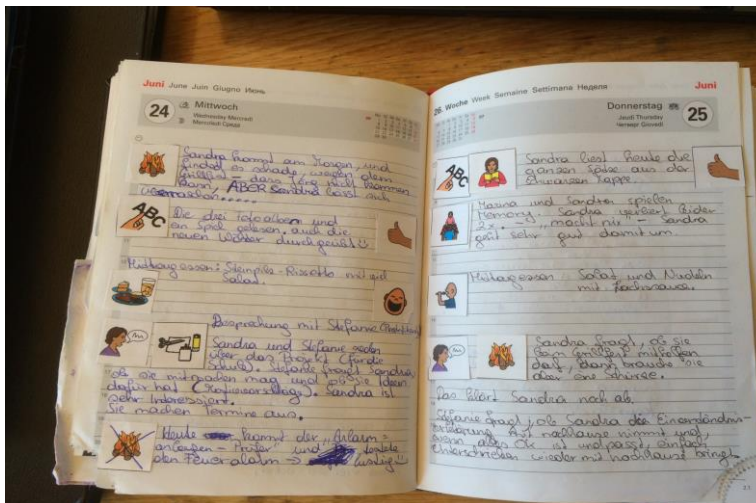 Juni June Juin Giugno Июнь
24 Mittwoch
Wednesday Mercredi
Mercoledì Среда
Sandra kommt am Morgen, und
findet es schade, wegen dem
Grillfest, dass Jörg nicht kommen
kann, ABER Sandra lässt sich
ABC
Die drei Fotoalben und
ein Spiel gelesen, auch die
neuen Wörter durchgeübt
Mittagessen: Steinpilz-Rissotto mit
Salat.
Besprechung mit Stefanie
Sandra und Stefanie reden
über das Projekt (für die
Schule). Stefanie fragt Sandra
ob sie mitmachen mag und ob sie Ideen
dafür hat. Sandra ist
sehr interessiert.
Sie machen Termine aus.
Heute kommt der "Alarm-
anlagen-Prüfer" und testete
den Feueralarm → 
26. Woche Week Semaine Settimana Неделя
Juni
Donnerstag 25
Jeudi Thursday
Четверг Giovedì
ABC
Sandra liest heute die
ganzen Sätze aus der
schwarzen Mappe.
Marina und Sandra spielen
Memory. Sandra verliert leider
2x. "macht nix" - Sandra
geht sehr gut damit um.
Mittagessen Salat und Nudeln
mit Lachssauce.
Sandra fragt, ob sie
beim Grillfest mithelfen
darf, dann bräuchte sie
aber eine Schürze.
Das klärt Sandra noch ab.
Stefanie fragt, ob Sandra die Einverständnis-
erklärung mit nachhause nimmt und,
wenn alles OK ist und passt, einfach
unterschrieben wieder mit nachhause bringt.